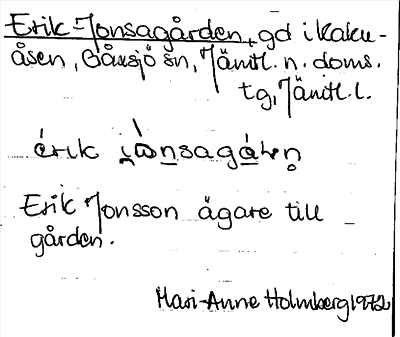 Erik-Jonsagården, gd i Kaku-
åsen, Båxsjö sn, Jämtl. n. doms.
tg, Jämtl. l.
érik i̯ònsagáɽn̥
Erik Jonsson ägare till
gården.
Mari-Anne Holmberg 1972